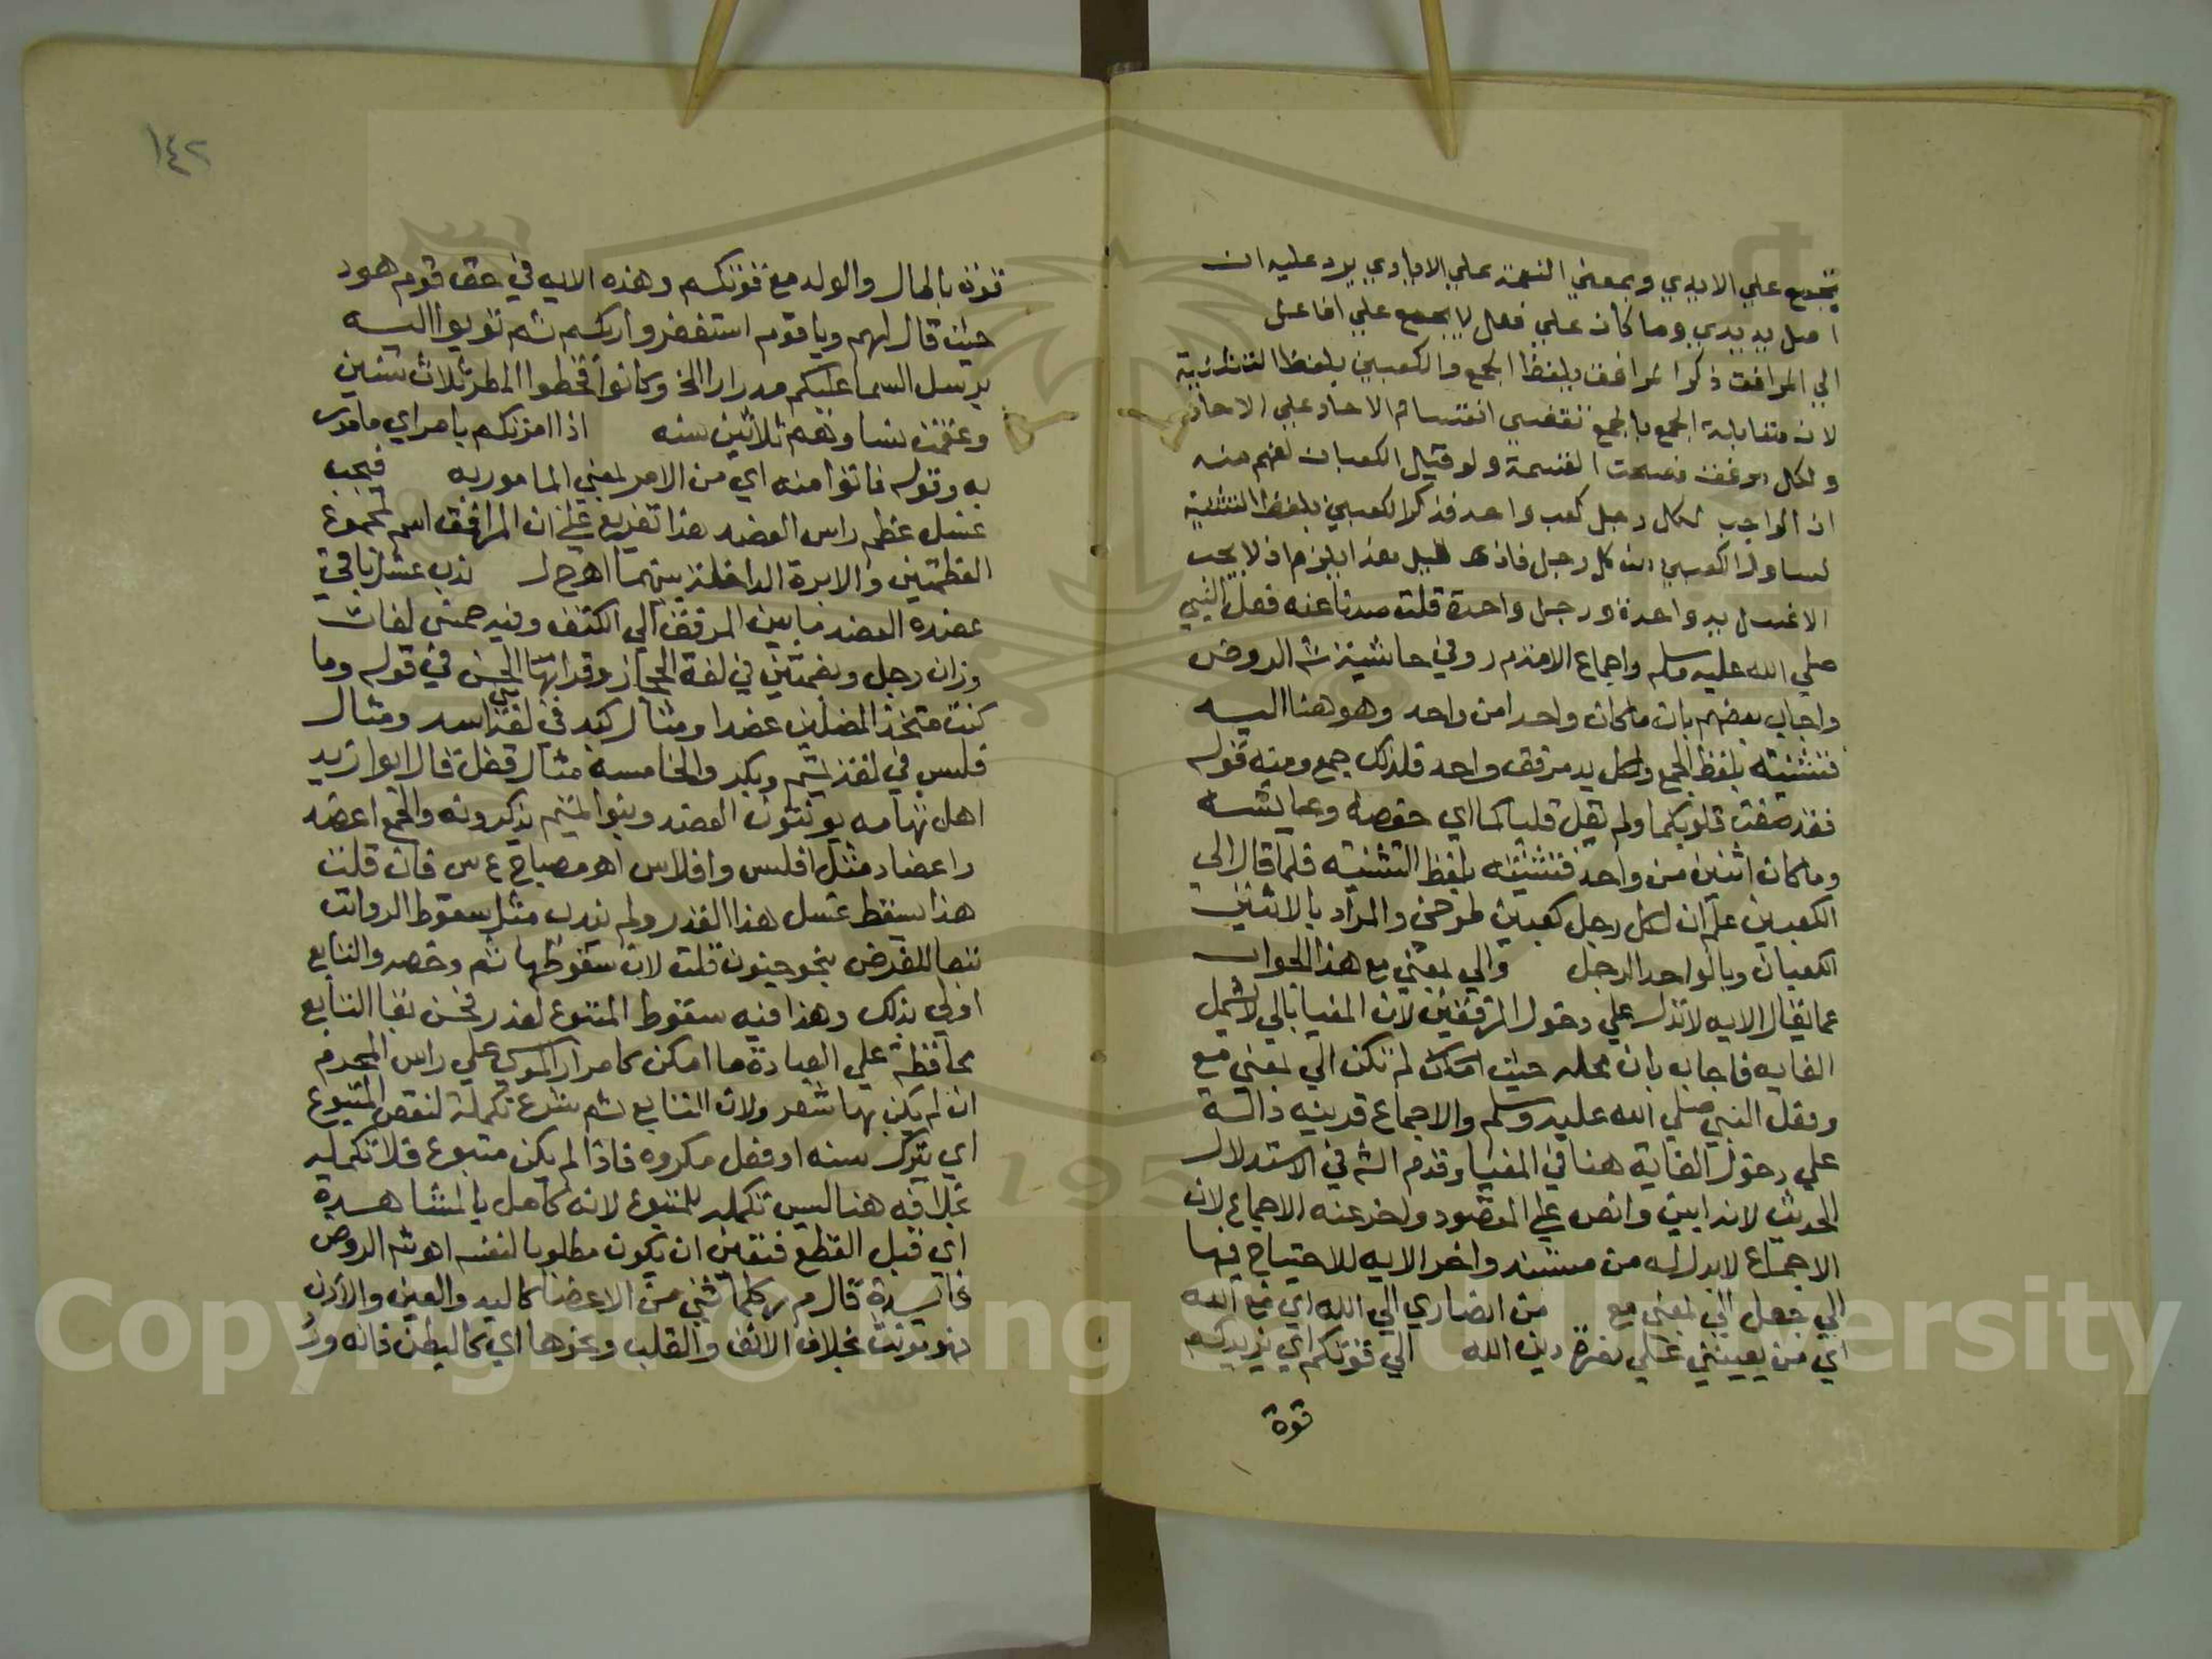 تجمع علي الايدي وبمعني النعمة علي الايادي يرد عليه ان
اصل يد يدي وما كان علي فعل لا يجمع علي افاعل
الي المرافق ذكر المرافق بلفظ الجمع والكعبين بلفظ التثنية
لان مقابلة الجمع بالجمع تقتضي انقسام الاحاد علي الاحاد
ولكل مرفق فصحت القسمة ولو قيل الكعبان لفهم منه
ان الواجب لكل رجل كعب واحد فذكر الكعبين بلفظ التثنية
ليتناول الكعبين من كل رجل فاذن قيل هذا يلزم اذ لا يجب
الا غسل يد واحدة ورجل واحدة قلت صدنا عنه فعل النبي
صلي الله عليه وسلم واجماع الامة م ر وفي حاشية شه الروض
واجاب بعضهم بان ما كان واحدا من واحد وهو هنا اليه
فتثنيته بلفظ الجمع ولكل يد مرفق واحد فلذلك جمع ومنه قوله
فقد صغت قلوبكما ولم يقل قلباكما اي حفصه وعايشه
وما كان اثنين من واحد فتثنيته بلفظ التثنيه فلما قال الي
الكعبين علم ان لكل رجل كعبين طوخي والمراد بالاثنين
الكعبان وبالواحد الرجل والي بمعني مع هذا الجواب
عما يقال الايه لا تدل علي دخول المرفقين لان المغيا بالي لا يشمل
الغايه فاجاب بان محله حيث لم تكن الي بمعني مع
وفعل النبي صلي الله عليه وسلم والاجماع قرينه دالة
علي دخول الغاية هنا في المغيا وقدم الشه في الاستدلال
الحديث لانه ابين وانص علي المقصود واخر عنه الاجماع لان
الاجماع لابد له من مستند واخر الايه للاحتياج فيها
الي جعل الي بمعني مع من انصاري الي الله اي مع الله
اي من يعينني علي نصرة دين الله الي قوتكم اي يزيدكم
قوة
١٤٢
قوة بالمال والولد مع قوتكم وهذه الايه في حق قوم هود
حيث قال لهم ويا قوم استغفروا ربكم ثم توبوا اليه
يرسل السما عليكم مدرارا الخ وكانوا قحطوا المطر ثلاث سنين
وعقمت نساوهم ثلاثين سنه اذا امرتكم بامر اي مامور
به وقوله فاتوا منه اي من الامر بمعني المامور به فيجب
غسل عظم راس العضد هذا تفريع علي ان المرفق اسم لمجموع
العظمتين والابرة الداخلة بينهما اهـ ح ل ندب غسل باقي
عضده العضد ما بين المرفق الي الكتف وفيه خمس لغات
وزان رجل وبضمتين في لغة الحجاز وقرا بها الحسن في قوله وما
كنت متخذ المضلين عضدا ومثال كبد في لغة بني اسد ومثال
فلس في لغة تميم وبكر والخامسة مثال قفل قال ابوا زيد
اهل تهامه يونثون العضد وبنوا تميم يذكرونه والجمع اعضد
واعضاد مثل افلس وافلاس اهـ مصباح ع س فان قلت
هذا سقط غسل هذا القدر ولم يندب مثل سقوط الرواتب
تبعا للفرض بنحو جنون قلت لان سقوطها ثم رخصه والتابع
اولي بذلك وهذا فيه سقوط المتبوع لعذر فحسن بقا التابع
محافظة علي العبادة ما امكن كامرار الموسي علي راس المحرم
ان لم يكن بها شعر ولان التابع ثم شرع تكملة لنقص المتبوع
اي بترك سنه او فعل مكروه فاذا لم يكن متبوع فلا تكمله
بخلافه هنا ليس تكمله للمتبوع لانه كامل بالمشاهدة
اي قبل القطع فتعين ان يكون مطلوبا لنفسه اهـ شه الروض
فايدة قال م ر كلما ثني من الاعضا كاليد والعين والاذن
فهو مونث بخلاف الانف والقلب ونحوها اي كالبطن فانه ورد